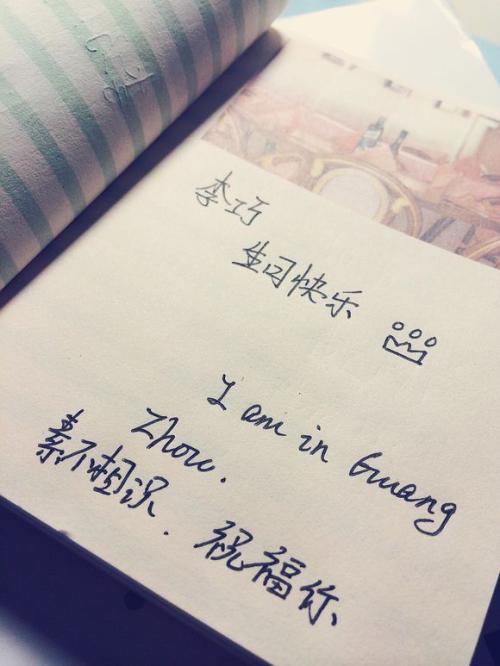 李巧
生日快乐
I am in Guang
Zhou.
素不相识. 祝福你